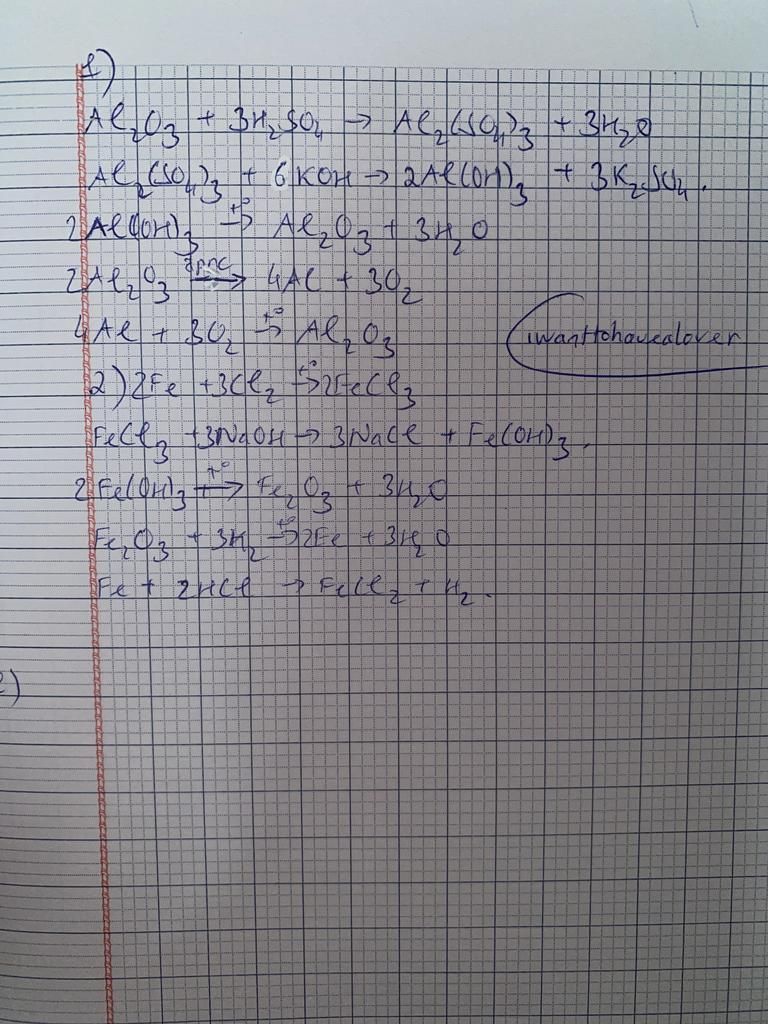 1)
Al₂O₃ + 3H₂SO₄ → Al₂(SO₄)₃ + 3H₂O
Al₂(SO₄)₃ + 6KOH → 2Al(OH)₃ + 3K₂SO₄.
2Al(OH)₃ →(t°) Al₂O₃ + 3H₂O
2Al₂O₃ →(đpnc) 4Al + 3O₂
4Al + 3O₂ →(t°) Al₂O₃
iwanttohavealover
2) 2Fe + 3Cl₂ →(t°) 2FeCl₃
FeCl₃ + 3NaOH → 3NaCl + Fe(OH)₃.
2Fe(OH)₃ →(t°) Fe₂O₃ + 3H₂O
Fe₂O₃ + 3H₂ →(t°) 2Fe + 3H₂O
Fe + 2HCl → FeCl₂ + H₂.